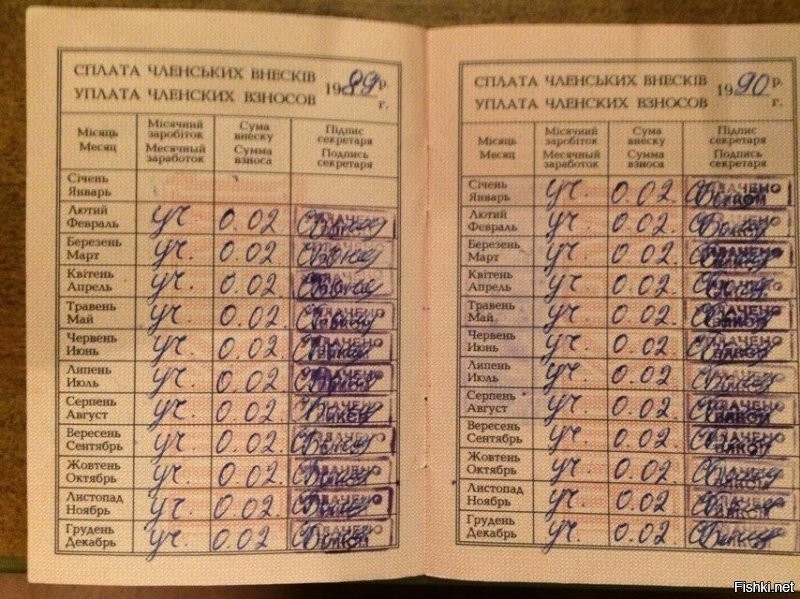 СПЛАТА ЧЛЕНСЬКИХ ВНЕСКІВ 1989 р.
УПЛАТА ЧЛЕНСКИХ ВЗНОСОВ г.
Місяць Місячний заробіток Сума внеску Підпис секретаря
Месяц Месячный заработок Сумма взноса Подпись секретаря
Січень
Январь
Лютий
Февраль уч. 0.02
Березень
Март уч. 0.02
Квітень
Апрель уч. 0.02
Травень
Май уч. 0.02
Червень
Июнь уч. 0.02
Липень
Июль уч. 0.02
Серпень
Август уч. 0.02
Вересень
Сентябрь уч. 0.02
Жовтень
Октябрь уч. 0.02
Листопад
Ноябрь уч. 0.02
Грудень
Декабрь уч. 0.02
СПЛАТА ЧЛЕНСЬКИХ ВНЕСКІВ 1990 р.
УПЛАТА ЧЛЕНСКИХ ВЗНОСОВ г.
Місяць Місячний заробіток Сума внеску Підпис секретаря
Месяц Месячный заработок Сумма взноса Подпись секретаря
Січень
Январь уч. 0.02.
Лютий
Февраль уч. 0.02.
Березень
Март уч. 0.02.
Квітень
Апрель уч. 0.02.
Травень
Май уч. 0.02.
Червень
Июнь уч. 0.02.
Липень
Июль уч. 0.02.
Серпень
Август уч. 0.02.
Вересень
Сентябрь уч. 0.02.
Жовтень
Октябрь уч. 0.02.
Листопад
Ноябрь уч. 0.02.
Грудень
Декабрь уч. 0.02.
Fishki.net